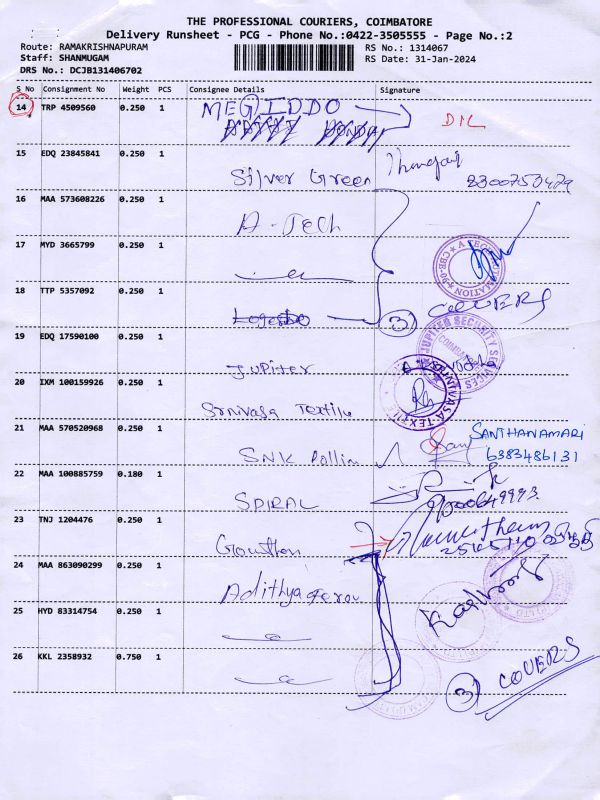 THE PROFESSIONAL COURIERS, COIMBATORE
Delivery Runsheet - PCG - Phone No.:0422-3505555 - Page No.:2
Route: RAMAKRISHNAPURAM RS No.: 1314067
Staff: SHANMUGAM RS Date: 31-Jan-2024
DRS No.: DCJB131406702
S No Consignment No Weight PCS Consignee Details Signature
14 TRP 4509560 0.250 1 MEGIDDO
15 EDQ 23845841 0.250 1 Silver Green
8300753479
16 MAA 573608226 0.250 1 A-Tech
17 MYD 3665799 0.250 1
18 TTP 5357092 0.250 1 3 COVERS
19 EDQ 17590100 0.250 1 Jupiter
JUPITER SECURITY SERVICES
20 IXM 100159926 0.250 1 Srnivasa Textile
SRINIVASA TEXTILE
21 MAA 570520968 0.250 1 SNK SANTHANAMARI
6383486131
22 MAA 100885759 0.180 1 SPIRAL
23 TNJ 1204476 0.250 1 Gowthm
24 MAA 863090299 0.250 1 Adithya
25 HYD 83314754 0.250 1
26 KKL 2358932 0.750 1 3 COVERS